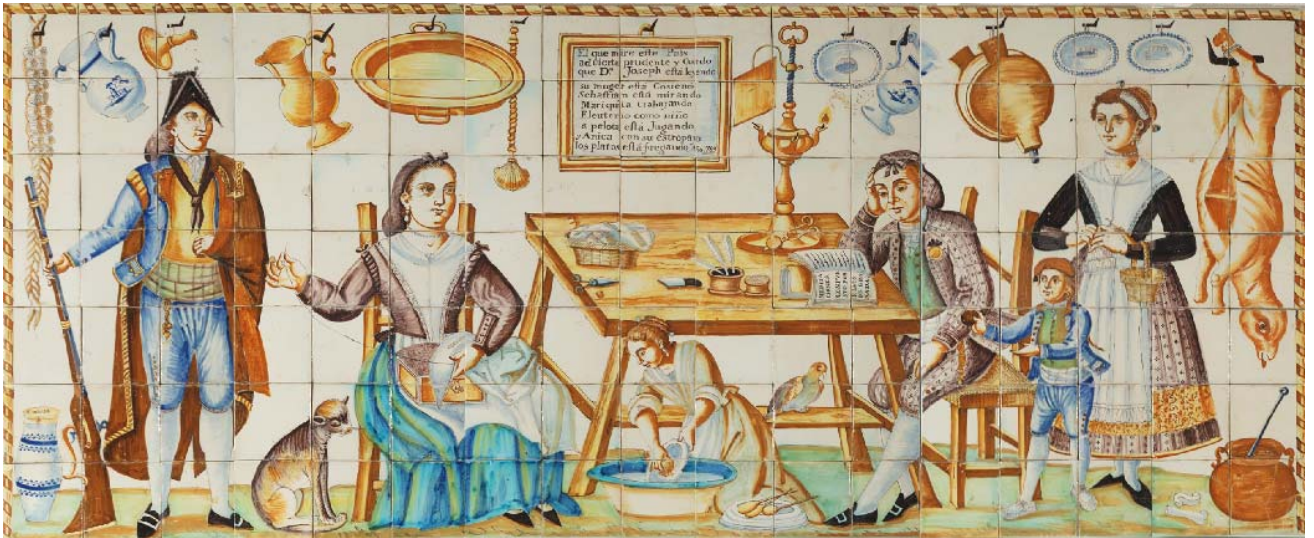 El que mire este Pais
advierta prudente y Cardo
que Dn. Joseph está leyendo
su muger está Cosiendo
Sebastian está mirando
Mariquita trabajando
Eleuterio como niño
a pelota está Jugando
y Anica con su estropajo
los platos está fregando